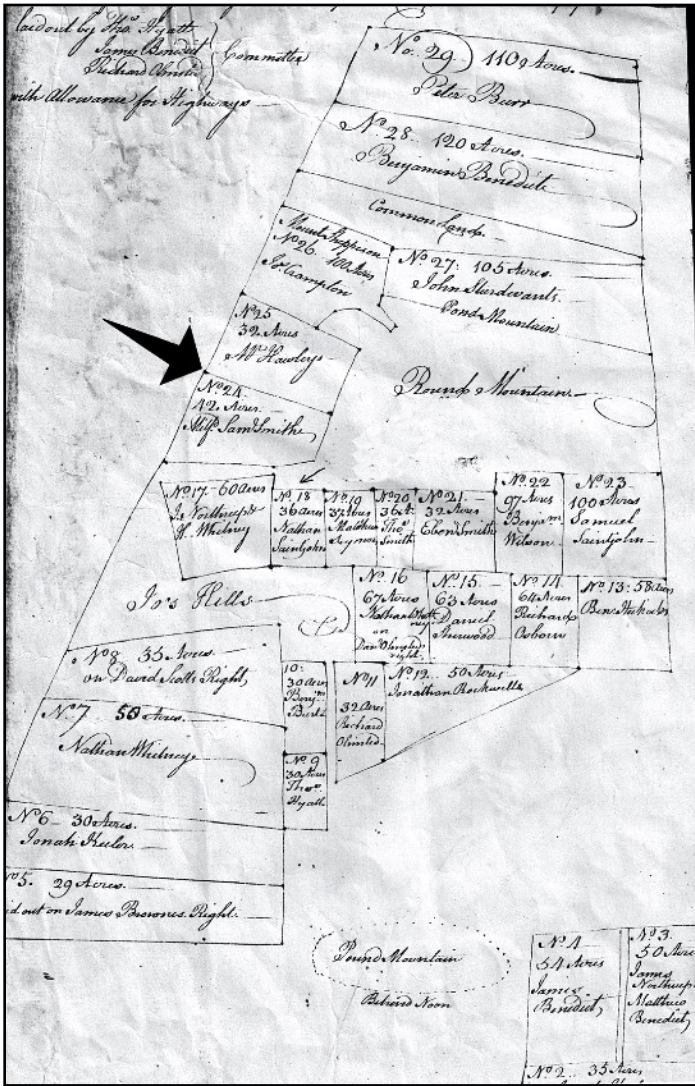 laid out by Thos. Hyatt
James Benedict
Richard Olmsted
Committee
with Allowance for Highways
No. 29 110 Acres.
Peter Burr
No. 28 120 Acres.
Benjamin Benedict
Common Land
Mount
No. 26. 100 Acres
Jo: Crampton
No. 27: 105 Acres.
John Sturdevants.
Pond Mountain
No. 25
32 Acres
Mr. Hawleys
Round Mountain
No. 24.
42 Acres.
Saml. Smith
No. 17 - 60 Acres
J. Northrup &
H. Whitney
No. 18
36 Acres
Nathan
Saintjohn
No. 19
37 Acres
Matthew
Seymor
No. 20
36 A.
Thos.
Smith
No. 21.
32 Acres
Eben Smith
No. 22
97 Acres
Benjam
Wilson
No. 23
100 Acres
Samuel
Saintjohn
Jo's Hills
No. 16
67 Acres
Nathan
on
Danl. Olmsteds
right.
No. 15.
63 Acres
Daniel
Sherwood
No. 14.
64 Acres
Richard
Osborn
No. 13: 58 Acres
Ben: Hickocks
No. 8 35 Acres.
on David Scotts Right,
10:
30 Acres
Benjm.
Burt
No. 11
32 Acres
Richard
Olmsted.
No. 12. 50 Acres
Jonathan Rockwells
No. 7 50 Acres.
Nathan Whitney
No. 9
30 Acres
Thos.
Hyatt
No. 6 - 30 Acres.
Jonah Keeler
No. 5. 29 Acres.
out on James Brownes Right.
Pound Mountain
Behind Noon
No. 4
54 Acres
James
Benedict,
No. 3.
50 Acres
James
Northrup
Matthew
Benedict,
No. 2. 35 Acres